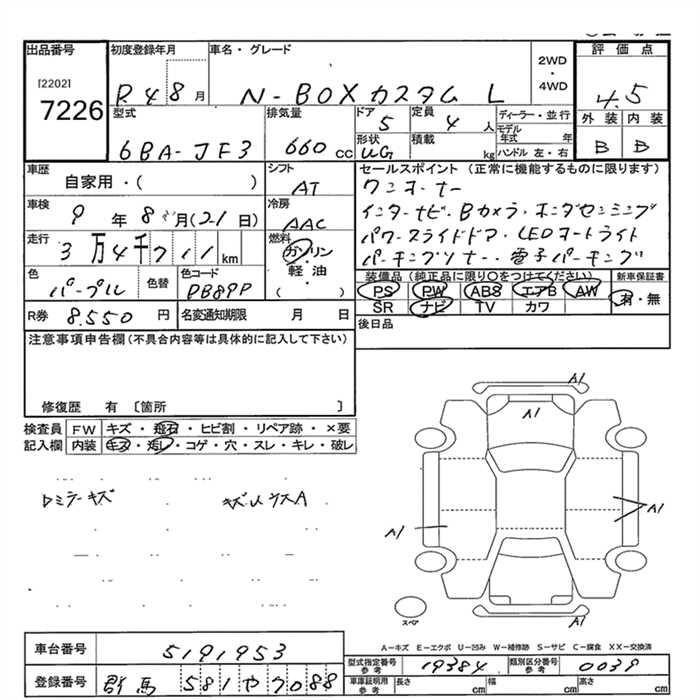 出品番号 初度登録年月 車名・グレード 評価点
[2202] 7226 R4 8月 N-BOXカスタム L 2WD・4WD 4.5
外装 内装
B B
型式 排気量 ドア 定員 ディーラー・並行
6BA-JF3 660cc 5 4人 モデル年式 年
形状 積載 ハンドル 左・右
UG kg
車歴 シフト セールスポイント (正常に機能するものに限ります)
自家用・( ) AT ワンオーナー
車検 冷房 インターナビ・Bカメラ・ホンダセンシング
9年8月(21日) AAC パワースライドドア・LEDオートライト
走行 燃料 パーキングソナー・電子パーキング
3万4千711km ガソリン・軽油・( )
色 色替 色コード 装備品 (純正品に限り○をつけてください) 新車保証書
パープル PB89P PS PW ABS エアB AW 有・無
SR ナビ TV カワ
R券 8.550円 名変通知期限 月 日 後日品
注意事項申告欄(不具合内容等は具体的に記入して下さい)
修復歴 有 〔箇所 〕
検査員 FW キズ・飛石・ヒビ割・リペア跡・×要
記入欄 内装 キズ・汚レ・コゲ・穴・スレ・キレ・破レ
A1
A1
A1
A1
A1
スペア
A-キズ E-エクボ U-凹み W-補修跡 S-サビ C-腐食 XX-交換済
車台番号 5191953
登録番号 群馬 581や7088
型式指定番号 参考 19384 類別区分番号 参考 0039
車庫証明用 参考 長さ cm 幅 cm 高さ cm